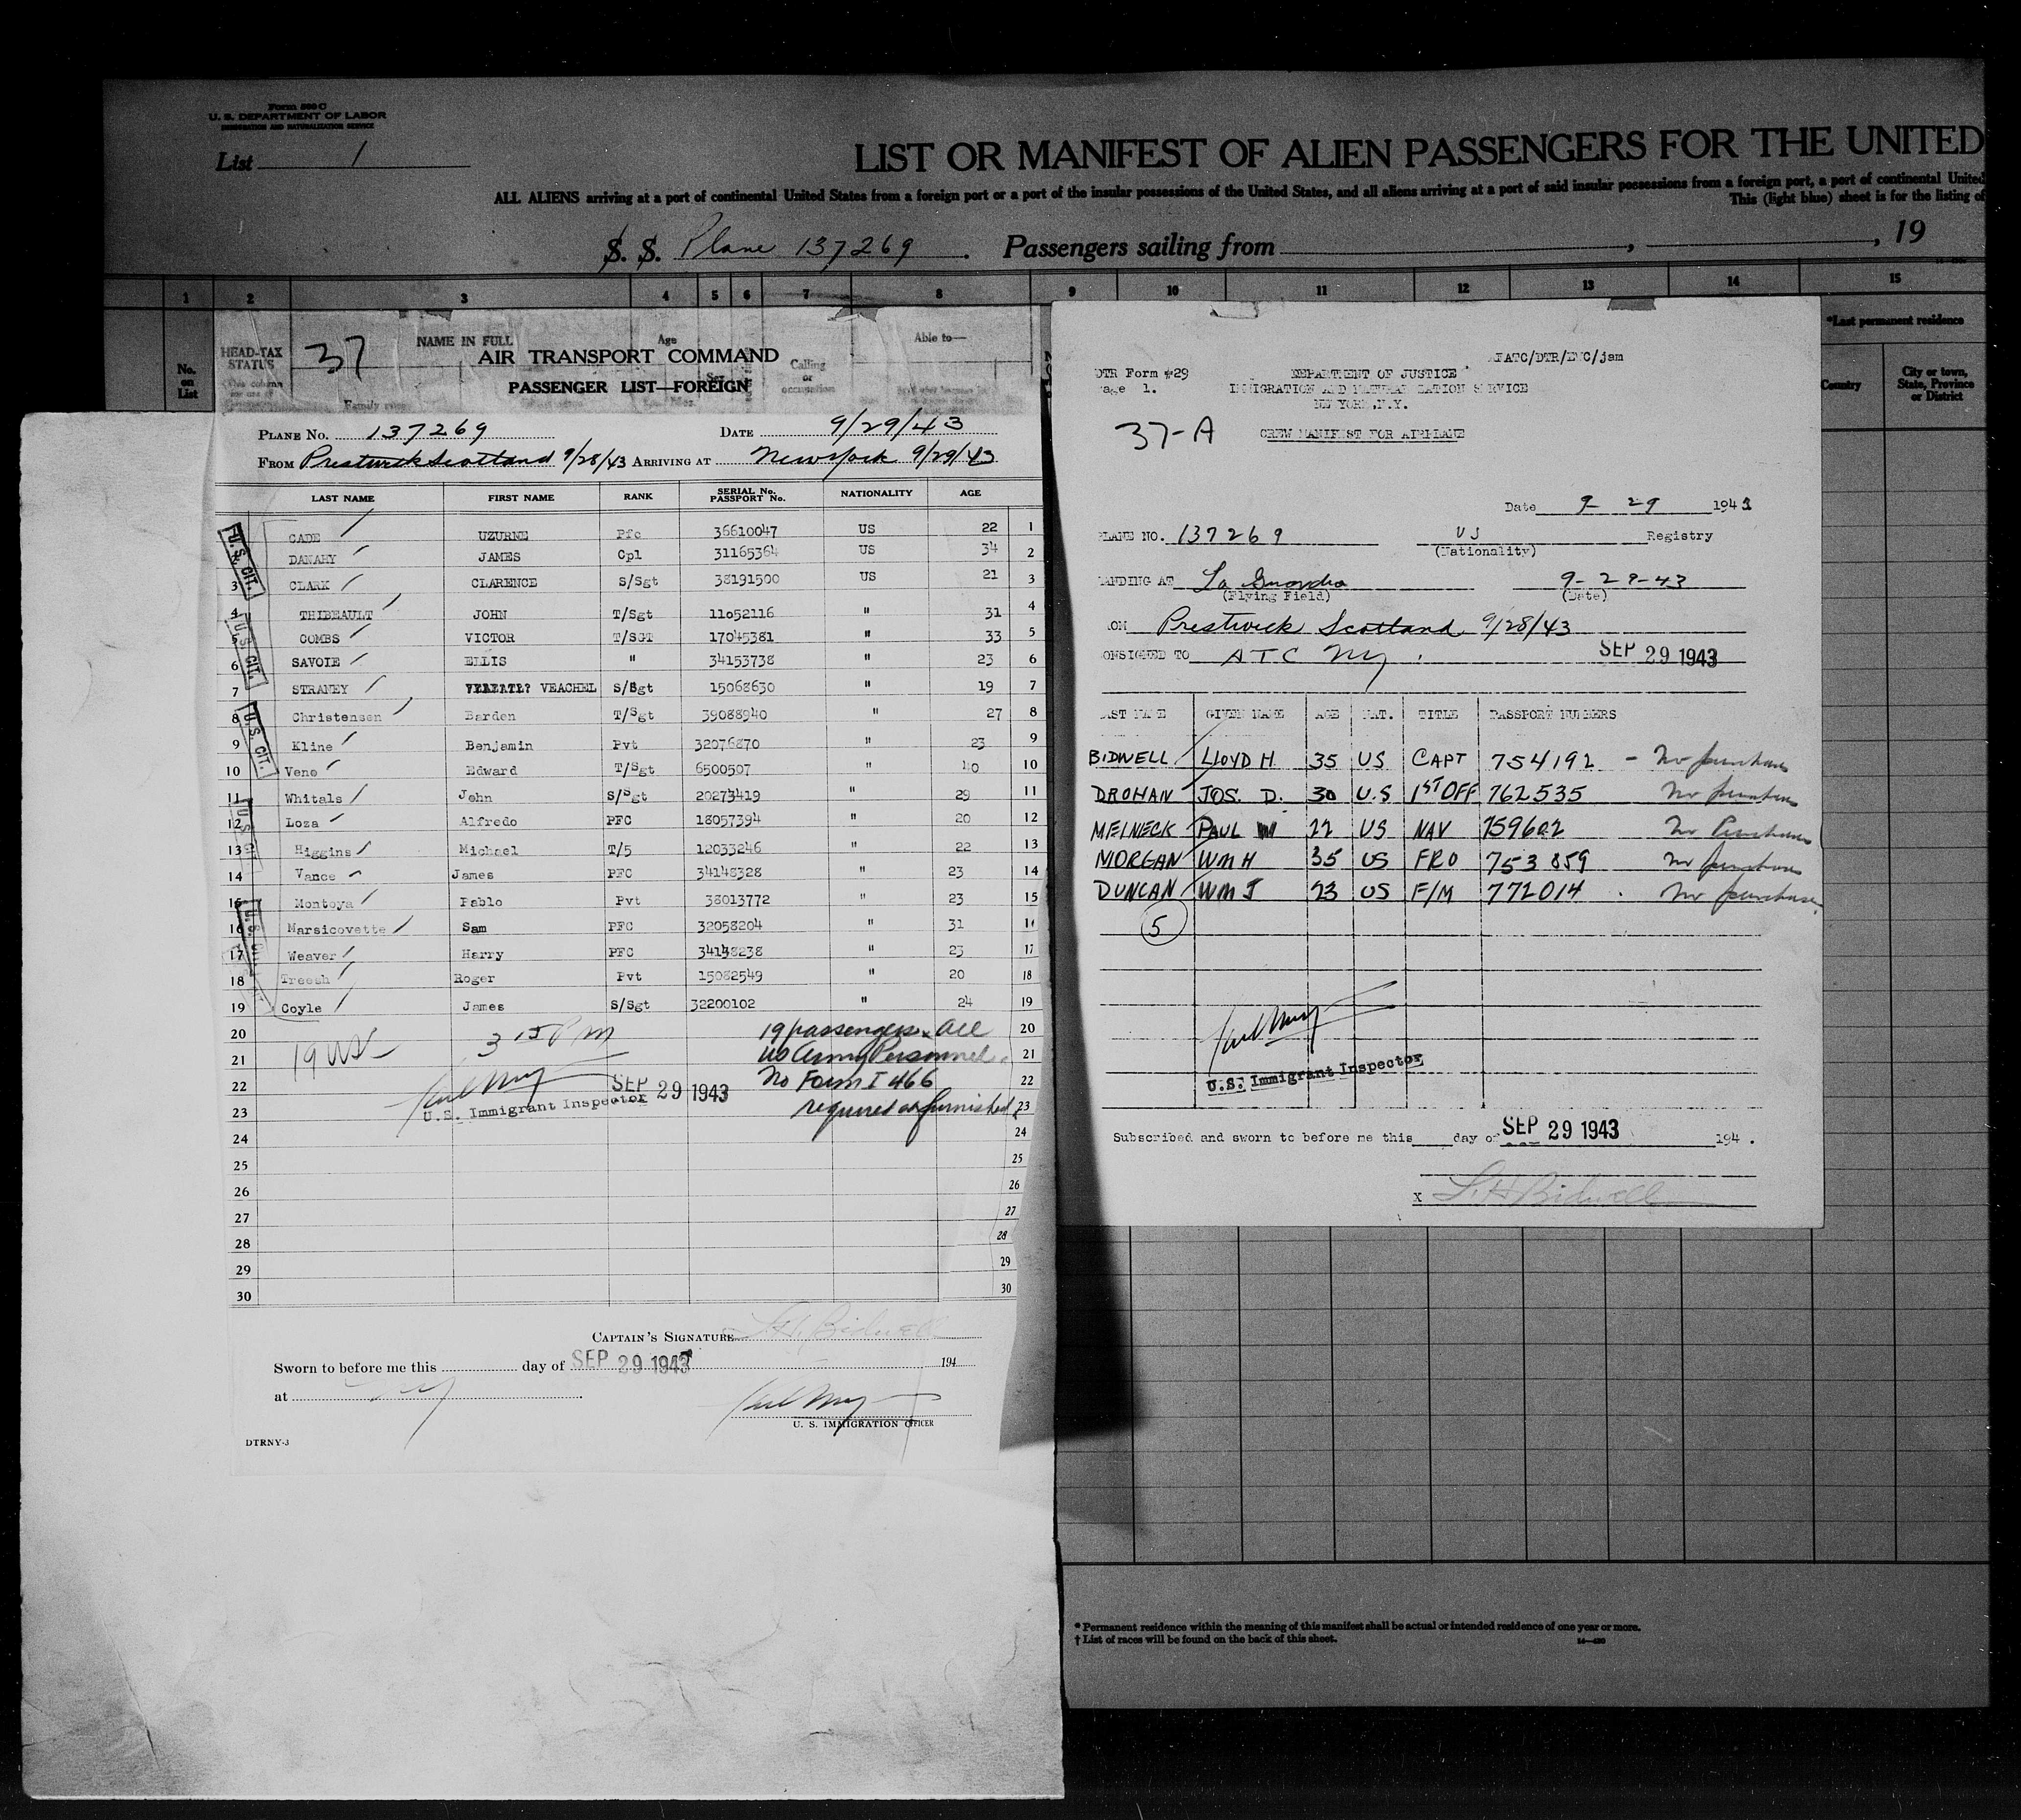 Form 500 C
U. S. DEPARTMENT OF LABOR
IMMIGRATION AND NATURALIZATION SERVICE
List 1
LIST OR MANIFEST OF ALIEN PASSENGERS FOR THE UNITED
ALL ALIENS arriving at a port of continental United States from a foreign port or a port of the insular possessions of the United States, and all aliens arriving at a port of said insular possessions from a foreign port, a port of continental United
This (light blue) sheet is for the listing of
S. S. Plane 137269. Passengers sailing from , , 19
1 2 3 4 5 6 7 8 9 10 11 12 13 14 15
No. on List
HEAD-TAX STATUS
NAME IN FULL
Age
Calling or occupation
Able to—
*Last permanent residence
Country
City or town, State, Province or District
37
AIR TRANSPORT COMMAND
PASSENGER LIST—FOREIGN
PLANE NO. 137269 DATE 9/29/43
FROM Prestwick Scotland 9/28/43 ARRIVING AT New York 9/29/43
LAST NAME FIRST NAME RANK SERIAL No. PASSPORT No. NATIONALITY AGE
CADE UZURNE Pfc 36610047 US 22 1
DANAHY JAMES Cpl 31165364 US 34 2
3 CLARK CLARENCE S/Sgt 38191500 US 21 3
4 THIBEAULT JOHN T/Sgt 11052116 " 31 4
5 COMBS VICTOR T/SGT 17045381 " 33 5
6 SAVOIE ELLIS " 34153738 " 23 6
7 STRANEY VEACHEL S/Sgt 15068630 " 19 7
8 Christensen Barden T/Sgt 39088940 " 27 8
9 Kline Benjamin Pvt 32076870 " 23 9
10 Veno Edward T/Sgt 6500507 " 40 10
11 Whitals John S/Sgt 20273419 " 29 11
12 Loza Alfredo PFC 18057394 " 20 12
13 Higgins Michael T/5 12033246 " 22 13
14 Vance James PFC 34148328 " 23 14
15 Montoya Pablo Pvt 38013772 " 23 15
16 Marsicovette Sam PFC 32058204 " 31 16
17 Weaver Harry PFC 34148238 " 23 17
18 Treesh Roger Pvt 15082549 " 20 18
19 Coyle James S/Sgt 32200102 " 24 19
U. S. CIT.
U. S. CIT.
U. S. CIT.
20 3 15 PM 19 passengers all 20
21 19 US US Army Personnel. 21
22 SEP 29 1943 No Form I 466 22
23 U.S. Immigrant Inspector required or furnished 23
24 24
25 25
26 26
27 27
28 28
29 29
30 30
CAPTAIN'S SIGNATURE L. H. Bidwell
Sworn to before me this day of SEP 29 1943 194
at NY
U. S. IMMIGRATION OFFICER
DTRNY-3
ATC/DTR/EWC/jam
DTR Form #29
Page 1.
DEPARTMENT OF JUSTICE
IMMIGRATION AND NATURALIZATION SERVICE
NEW YORK, N.Y.
37-A CREW MANIFEST FOR AIRPLANE
Date 9 29 1943
PLANE NO. 137269 US Registry
(Nationality)
LANDING AT La Guardia 9-29-43
(Flying Field) (Date)
FROM Prestwick Scotland 9/28/43
CONSIGNED TO ATC NY. SEP 29 1943
LAST NAME GIVEN NAME AGE NAT. TITLE PASSPORT NUMBERS
BIDWELL LLOYD H. 35 US CAPT 754192 - No purchases
DROHAN JOS. D. 30 U.S 1ST OFF 762535 No purchases
MELNIECK PAUL 22 US NAV 759602 No Purchases
MORGAN WM H 35 US FRO 753859 No purchases
DUNCAN WM J 23 US F/M 772014 No purchases
5
U.S. Immigrant Inspector
Subscribed and sworn to before me this day of SEP 29 1943 194 .
X L. H. Bidwell
* Permanent residence within the meaning of this manifest shall be actual or intended residence of one year or more.
† List of races will be found on the back of this sheet.